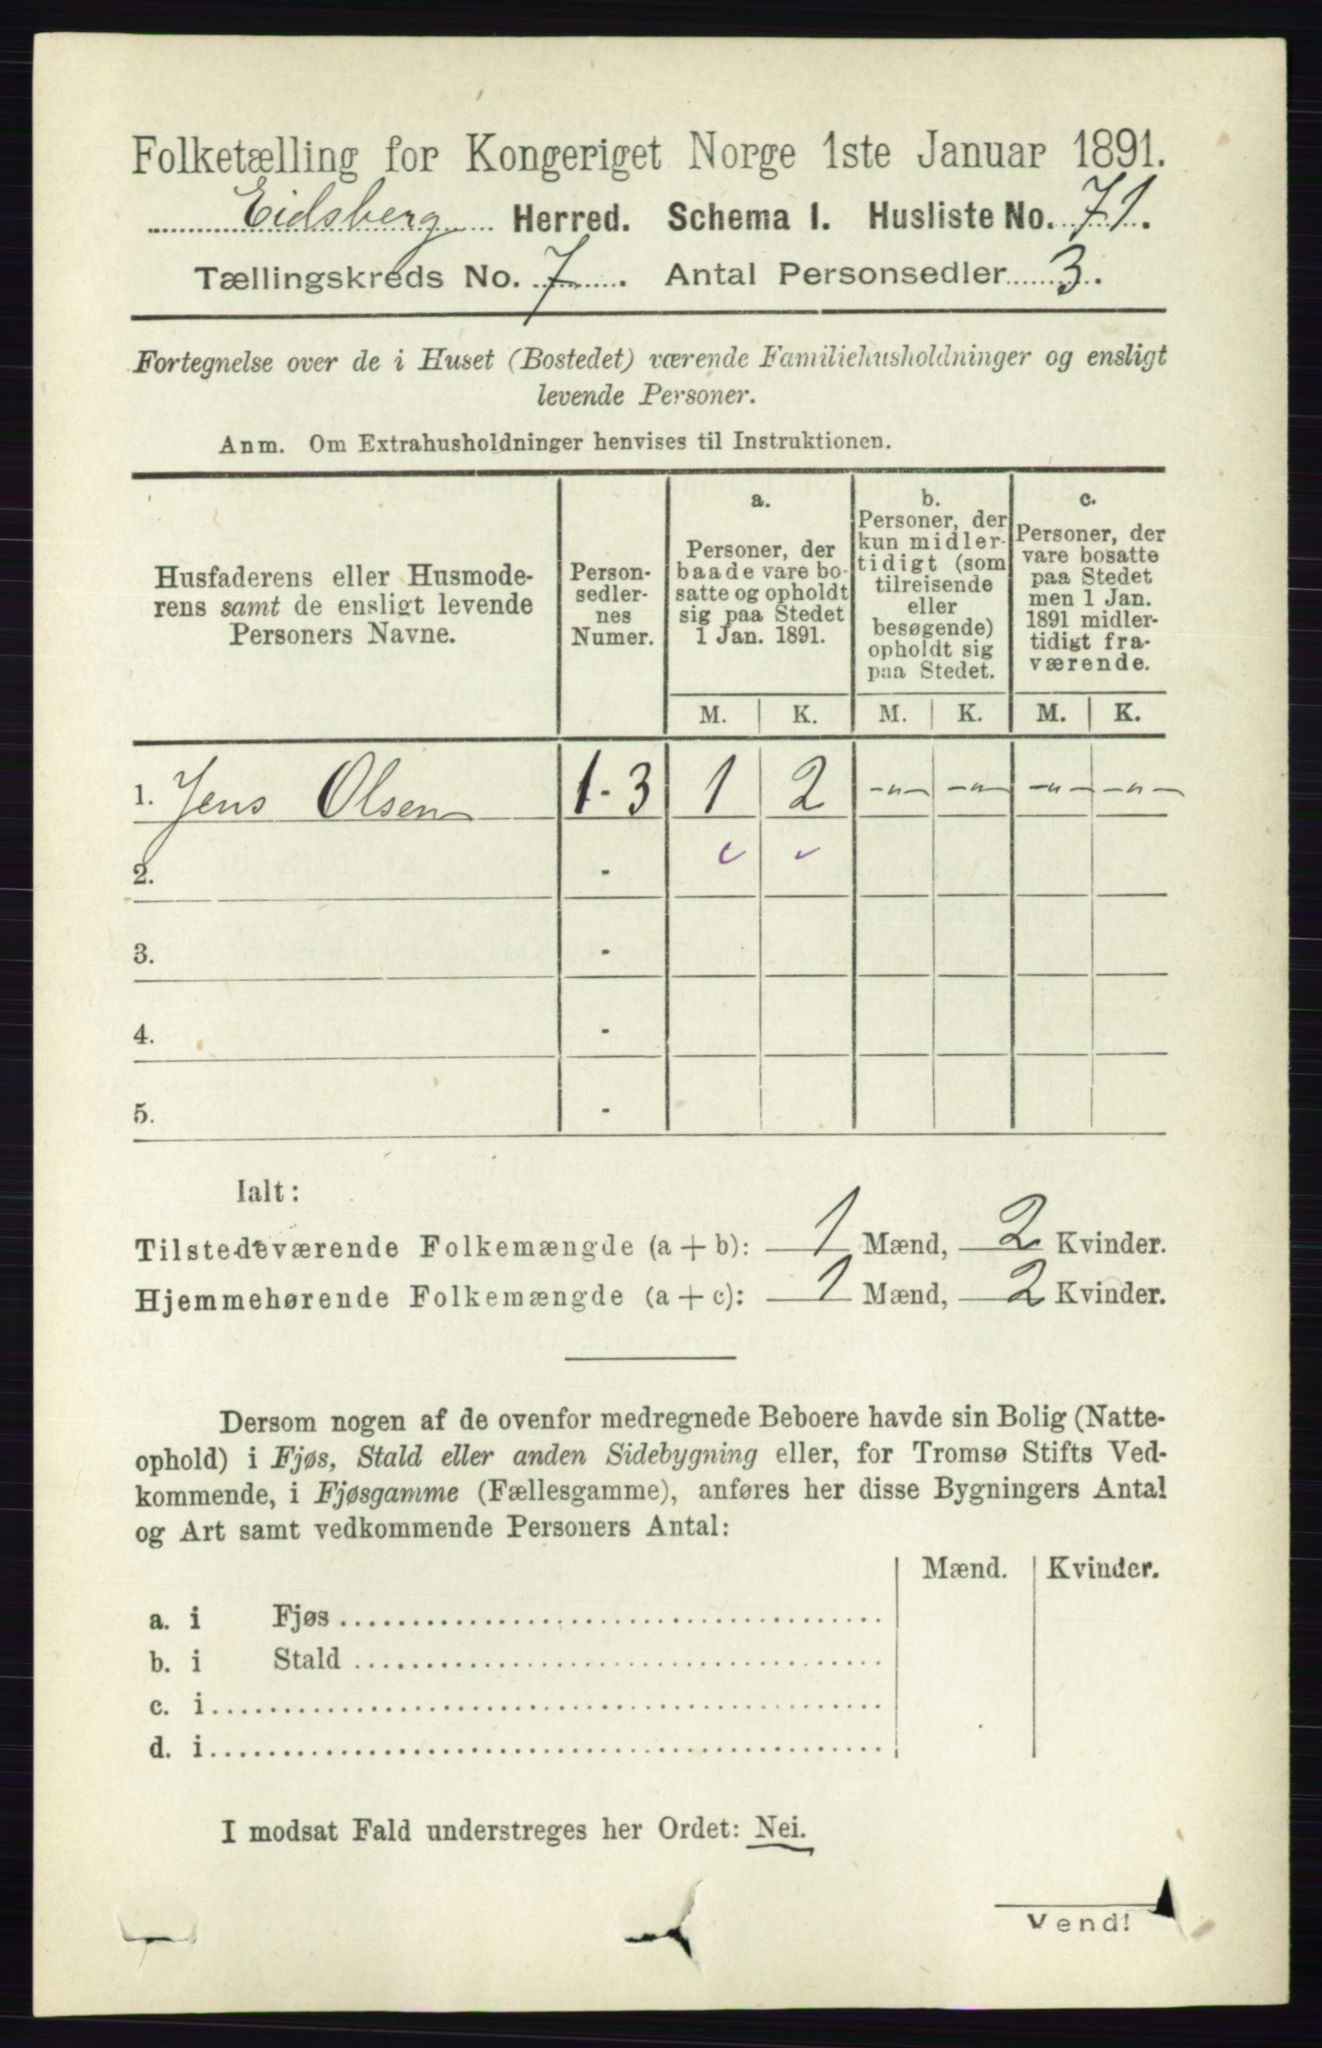 Folketælling for Kongeriget Norge 1ste Januar 1891.
Eidsberg Herred. Schema 1. Husliste No. 71.
Tællingskreds No. 7. Antal Personsedler 3.
Fortegnelse over de i Huset (Bostedet) værende Familiehusholdninger og ensligt
levende Personer.
Anm. Om Extrahusholdninger henvises til Instruktionen.
Husfaderens eller Husmode-
rens samt de ensligt levende
Personers Navne.
Person-
sedler-
nes
Numer.
a.
Personer, der
baade vare bo-
satte og opholdt
sig paa Stedet
1 Jan. 1891.
b.
Personer, der
kun midler-
tidigt (som
tilreisende
eller
besøgende)
opholdt sig
paa Stedet.
c.
Personer, der
vare bosatte
paa Stedet
men 1 Jan.
1891 midler-
tidigt fra-
værende.
M. K. M. K. M. K.
1. Jens Olsen 1-3 1 2 -"- -"- -"- -"-
2. -
3. -
4. -
5. -
Ialt:
Tilstedeværende Folkemængde (a + b): 1 Mænd, 2 Kvinder.
Hjemmehørende Folkemængde (a + c): 1 Mænd, 2 Kvinder.
Dersom nogen af de ovenfor medregnede Beboere havde sin Bolig (Natte-
ophold) i Fjøs, Stald eller anden Sidebygning eller, for Tromsø Stifts Ved-
kommende, i Fjøsgamme (Fællesgamme), anføres her disse Bygningers Antal
og Art samt vedkommende Personers Antal:
Mænd. Kvinder.
a. i Fjøs
b. i Stald
c. i
d. i
I modsat Fald understreges her Ordet: Nei.
Vend!